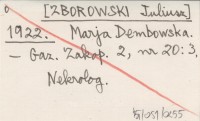 [ZBOROWSKI Juliusz]
1922. Marja Dembowska.
– Gaz. Zakop. 2, nr 20: 3.
Nekrolog.